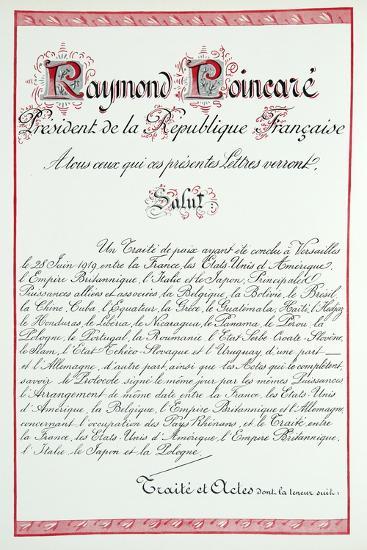 Raymond Poincaré
Président de la République Française
A tous ceux qui ces présentes Lettres verront,
Salut:
Un Traité de paix ayant été conclu à Versailles
le 28 Juin 1919, entre la France, les Etats-Unis d'Amérique,
l'Empire Britannique, l'Italie et le Japon, Principales
Puissances alliées et associées, la Belgique, la Bolivie, le Brésil,
la Chine, Cuba, l'Equateur, la Grèce, le Guatemala, Haïti, l'Hedjaz,
le Honduras, le Libéria, le Nicaragua, le Panama, le Pérou, la
Pologne, le Portugal, la Roumanie, l'Etat Serbe-Croate-Slovène,
le Siam, l'Etat Tchéco-Slovaque et l'Uruguay, d'une part
et l'Allemagne, d'autre part, ainsi que les Actes qui le complètent,
savoir le Protocole signé le même jour par les mêmes Puissances
l'Arrangement de même date entre la France, les Etats-Unis
d'Amérique, la Belgique, l'Empire Britannique et l'Allemagne,
concernant l'occupation des Pays Rhénans, et le Traité entre
la France, les Etats-Unis d'Amérique, l'Empire Britannique,
l'Italie, le Japon et la Pologne,
Traité et Actes dont la teneur suit: